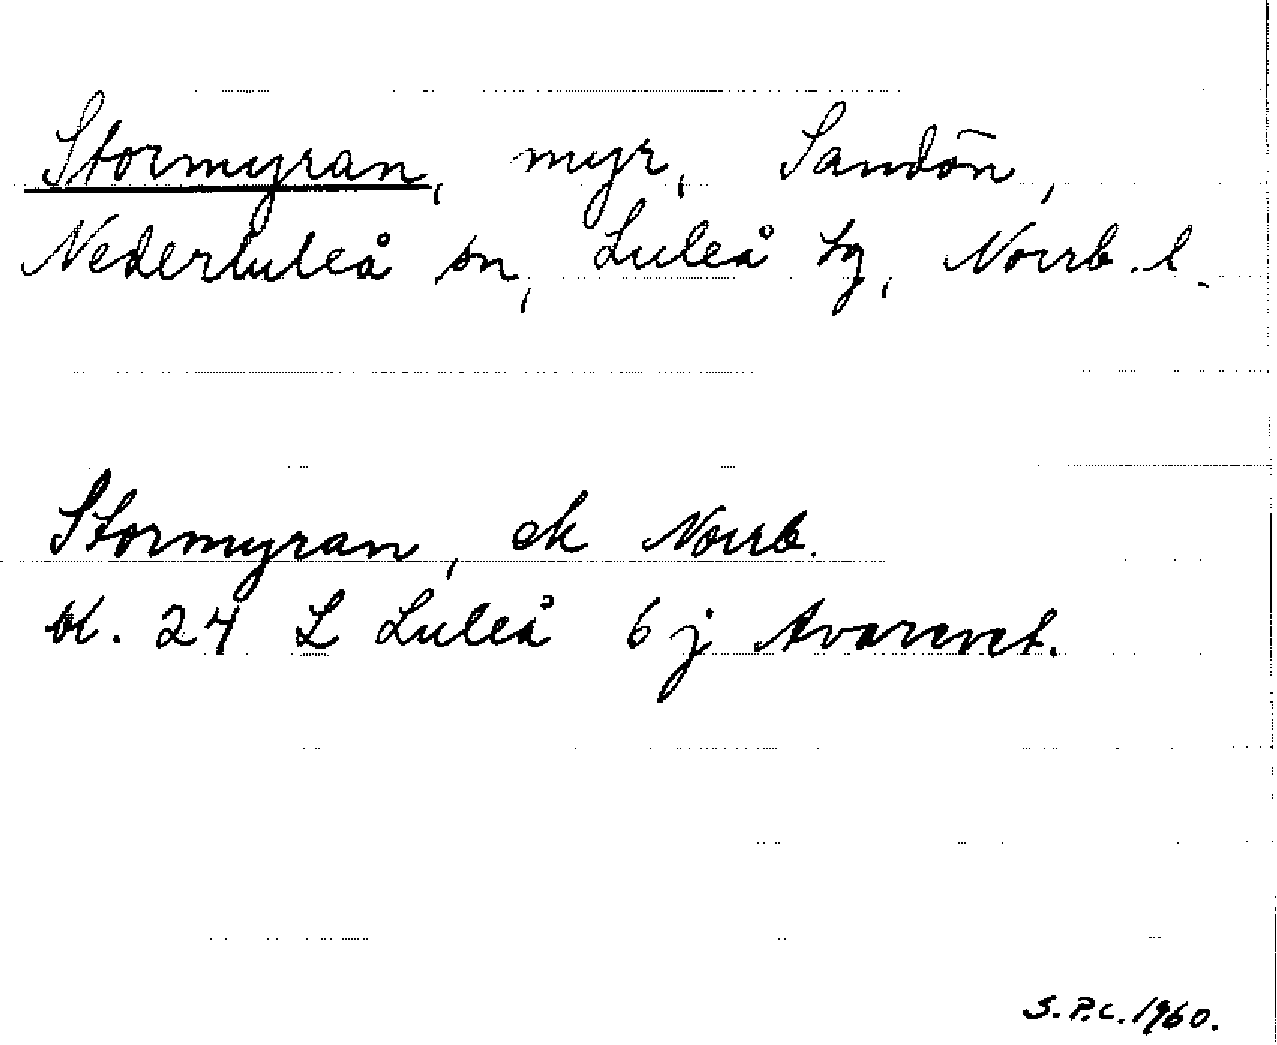 Stormyran, myr, Sandön,
Nederluleå sn, Luleå tg, Norrb. l.
Stormyran, ek Norrb.
bl. 24 L Luleå 6 j
S.P.C. 1960.